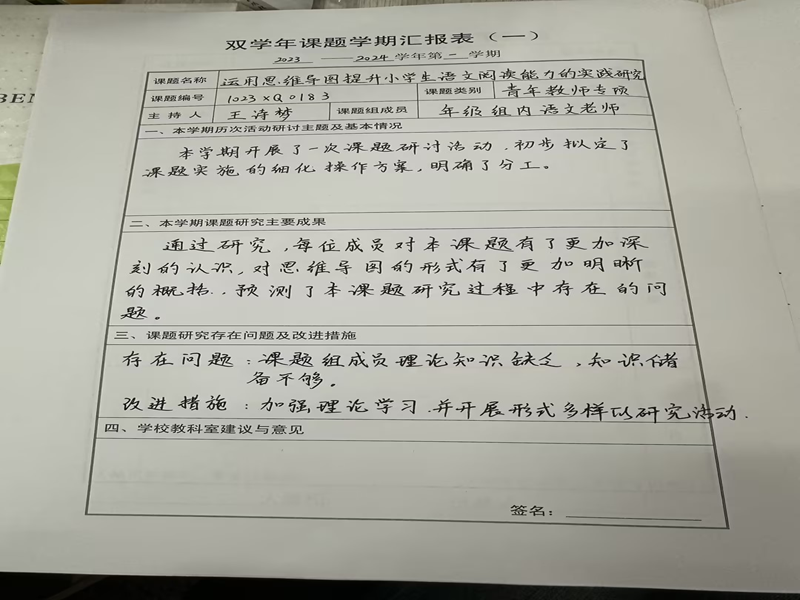 双学年课题学期汇报表（一）
2023 —— 2024 学年第 一 学期
课题名称 运用思维导图提升小学生语文阅读能力的实践研究
课题编号 1023XQ0183 课题类别 青年教师专项
主持人 王诗梦 课题组成员 年级组内语文老师
一、本学期历次活动研讨主题及基本情况
本学期开展了一次课题研讨活动，初步拟定了
课题实施的细化操作方案，明确了分工。
二、本学期课题研究主要成果
通过研究，每位成员对本课题有了更加深
刻的认识，对思维导图的形式有了更加明晰
的概括，预测了本课题研究过程中存在的问
题。
三、课题研究存在问题及改进措施
存在问题：课题组成员理论知识缺乏，知识储
备不够。
改进措施：加强理论学习，并开展形式多样以研究活动.
四、学校教科室建议与意见
签名：
BEN